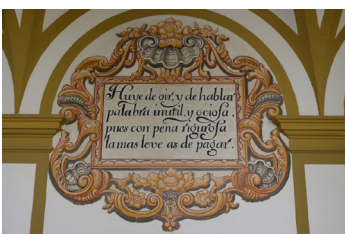 Huye de oir, y de hablar
palabra inutil, y ociosa,
pues con pena rigurosa
la mas leve as de pagar.